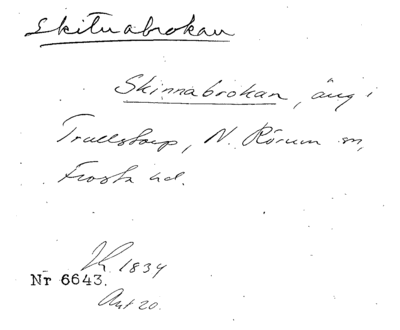 Skitnabrokan
Skinnabrokan, äng i
Trullstorp, N. Rörum sn,
Frosta hd.
1834
Nr 6643.
Akt 20.